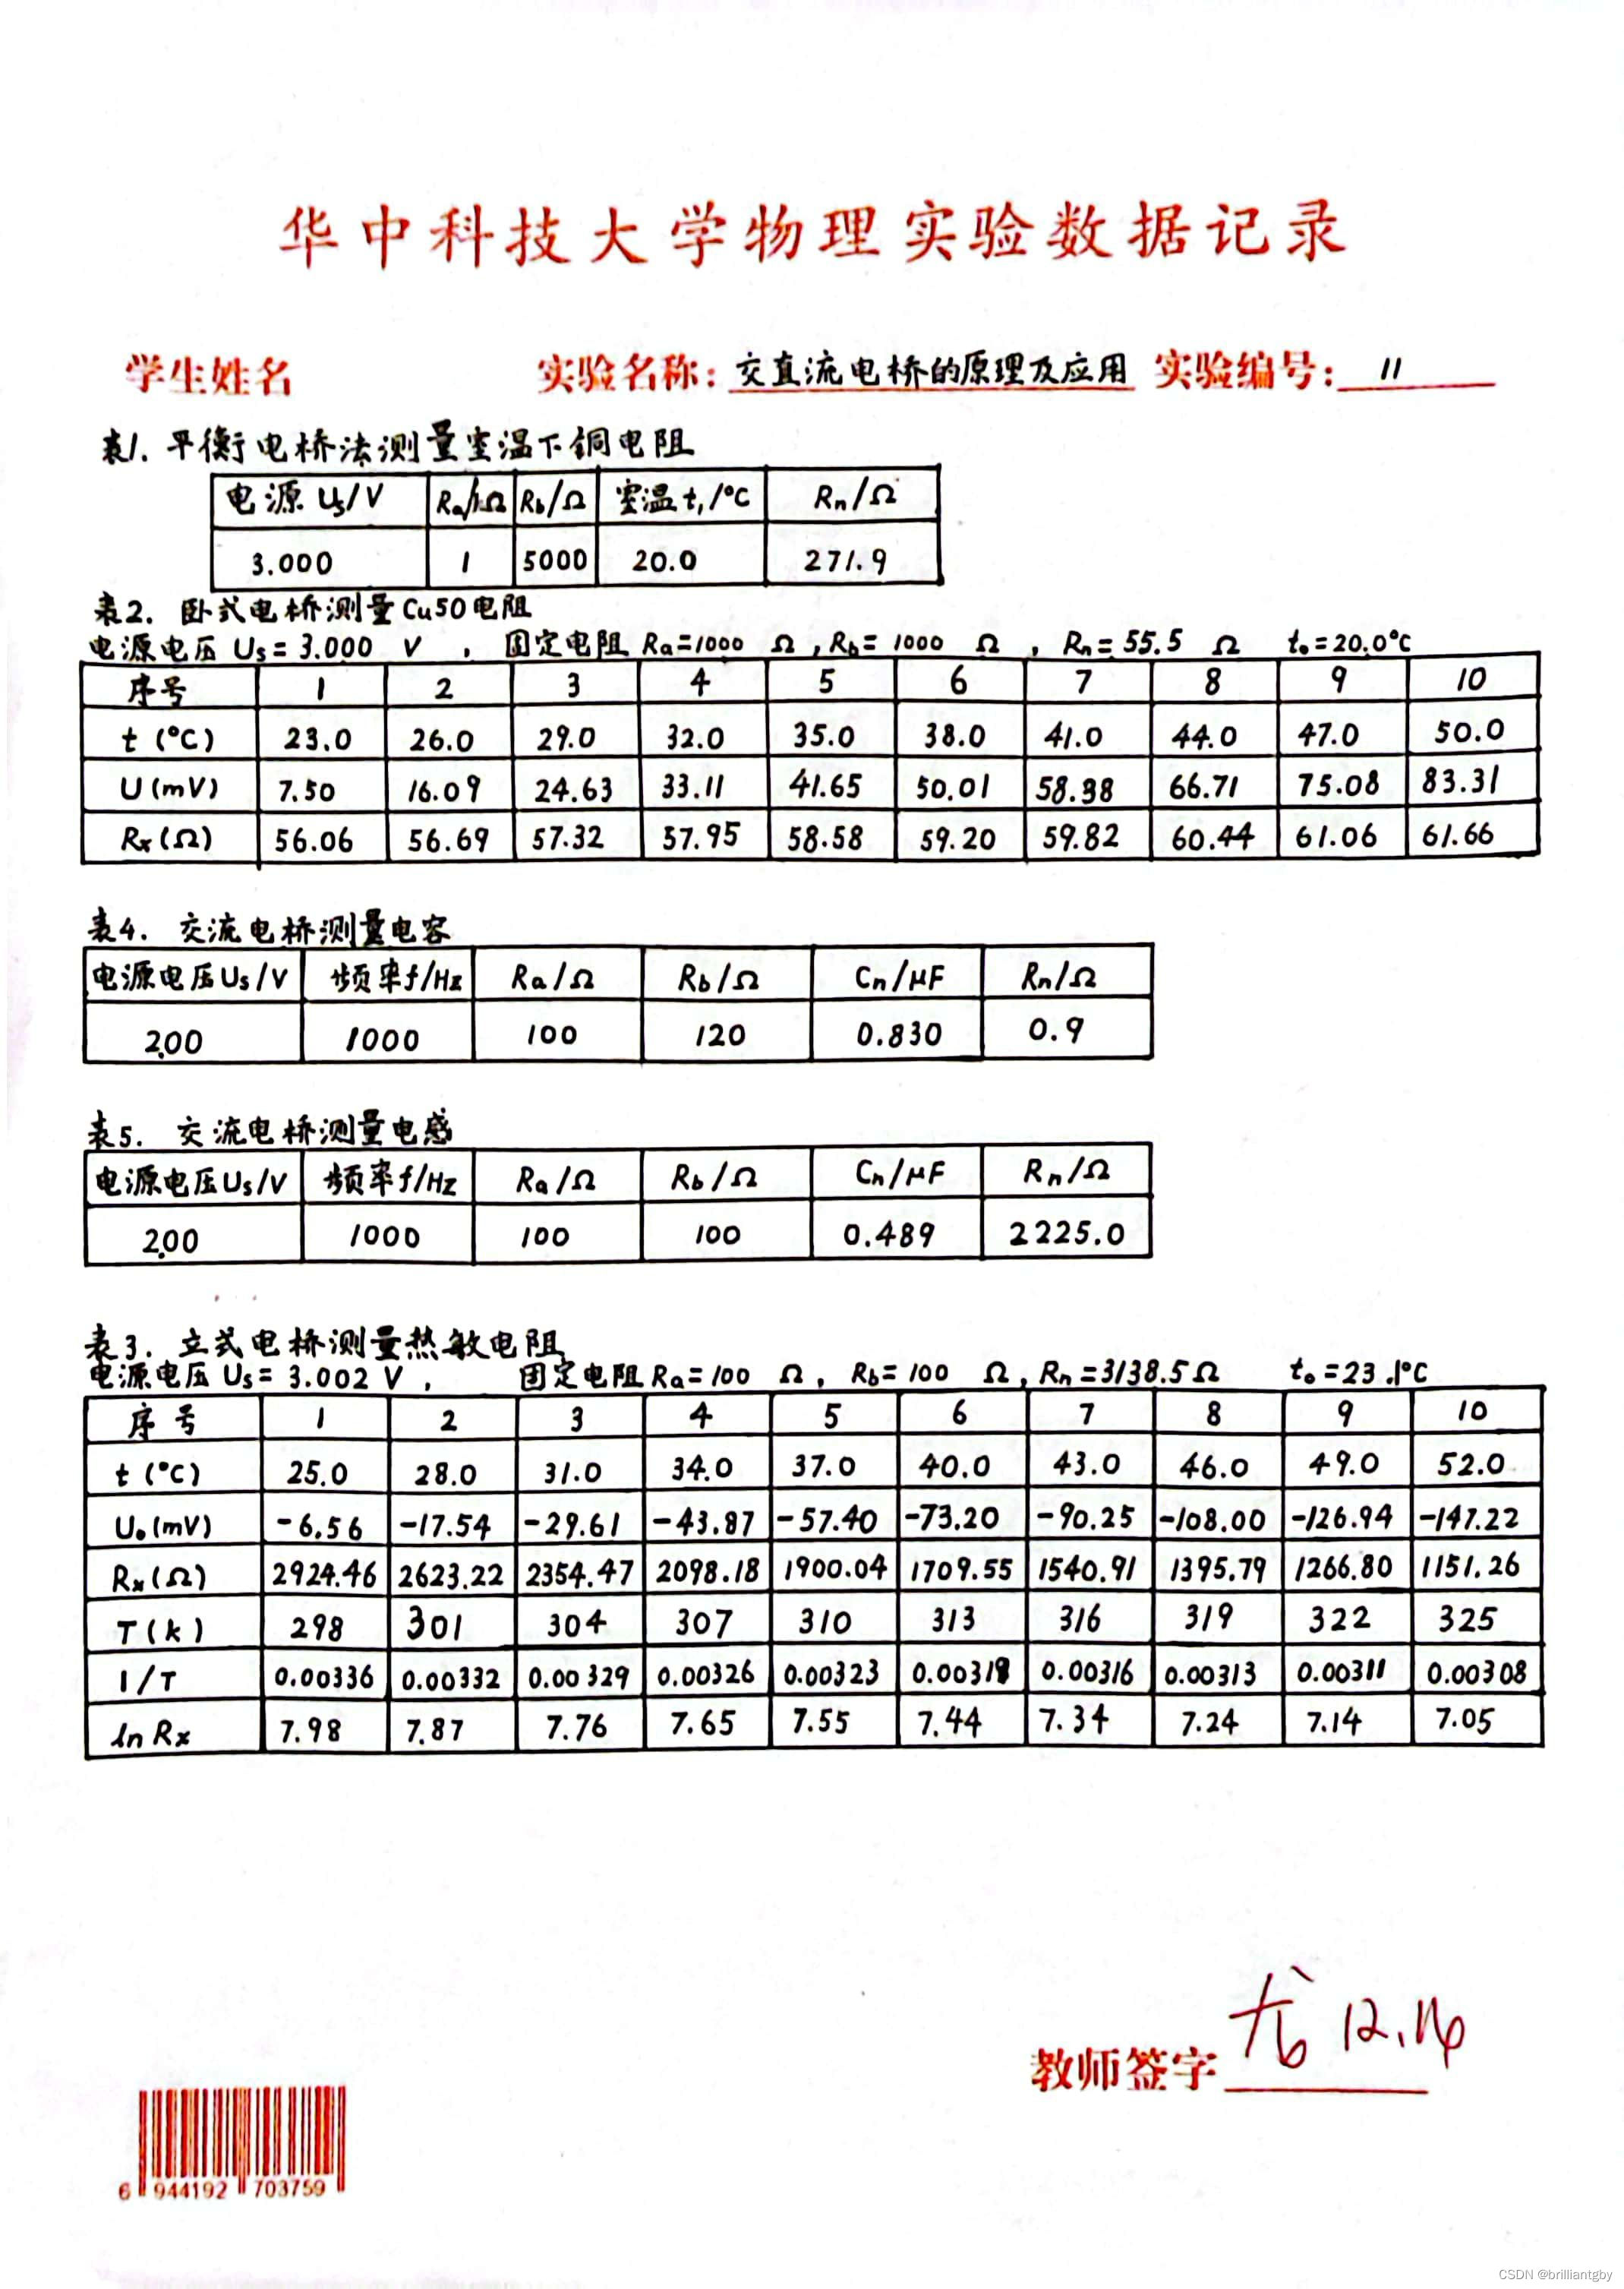 华中科技大学物理实验数据记录
学生姓名 实验名称: 交直流电桥的原理及应用 实验编号: 11
表1. 平衡电桥法测量室温下铜电阻
电源 Us/V Ra/Ω Rb/Ω 室温 t₁/°C Rn/Ω
3.000 1 5000 20.0 271.9
表2. 卧式电桥测量Cu50电阻
电源电压 Us = 3.000 V , 固定电阻 Ra=1000 Ω , Rb= 1000 Ω , Rn= 55.5 Ω t₀=20.0°C
序号 1 2 3 4 5 6 7 8 9 10
t (°C) 23.0 26.0 29.0 32.0 35.0 38.0 41.0 44.0 47.0 50.0
U (mV) 7.50 16.09 24.63 33.11 41.65 50.01 58.38 66.71 75.08 83.31
Rx (Ω) 56.06 56.69 57.32 57.95 58.58 59.20 59.82 60.44 61.06 61.66
表4. 交流电桥测量电容
电源电压Us/V 频率f/Hz Ra/Ω Rb/Ω Cn/μF Rn/Ω
2.00 1000 100 120 0.830 0.9
表5. 交流电桥测量电感
电源电压Us/V 频率f/Hz Ra/Ω Rb/Ω Cn/μF Rn/Ω
2.00 1000 100 100 0.489 2225.0
表3. 立式电桥测量热敏电阻
电源电压 Us = 3.002 V , 固定电阻 Ra= 100 Ω , Rb= 100 Ω , Rn=3138.5Ω t₀=23.1°C
序号 1 2 3 4 5 6 7 8 9 10
t (°C) 25.0 28.0 31.0 34.0 37.0 40.0 43.0 46.0 49.0 52.0
U₀(mV) -6.56 -17.54 -29.61 -43.87 -57.40 -73.20 -90.25 -108.00 -126.94 -147.22
Rx(Ω) 2924.46 2623.22 2354.47 2098.18 1900.04 1709.55 1540.91 1395.79 1266.80 1151.26
T(k) 298 301 304 307 310 313 316 319 322 325
1/T 0.00336 0.00332 0.00329 0.00326 0.00323 0.00319 0.00316 0.00313 0.00311 0.00308
ln Rx 7.98 7.87 7.76 7.65 7.55 7.44 7.34 7.24 7.14 7.05
教师签字 12.14
6 944192 703759
CSDN @brilliantgby